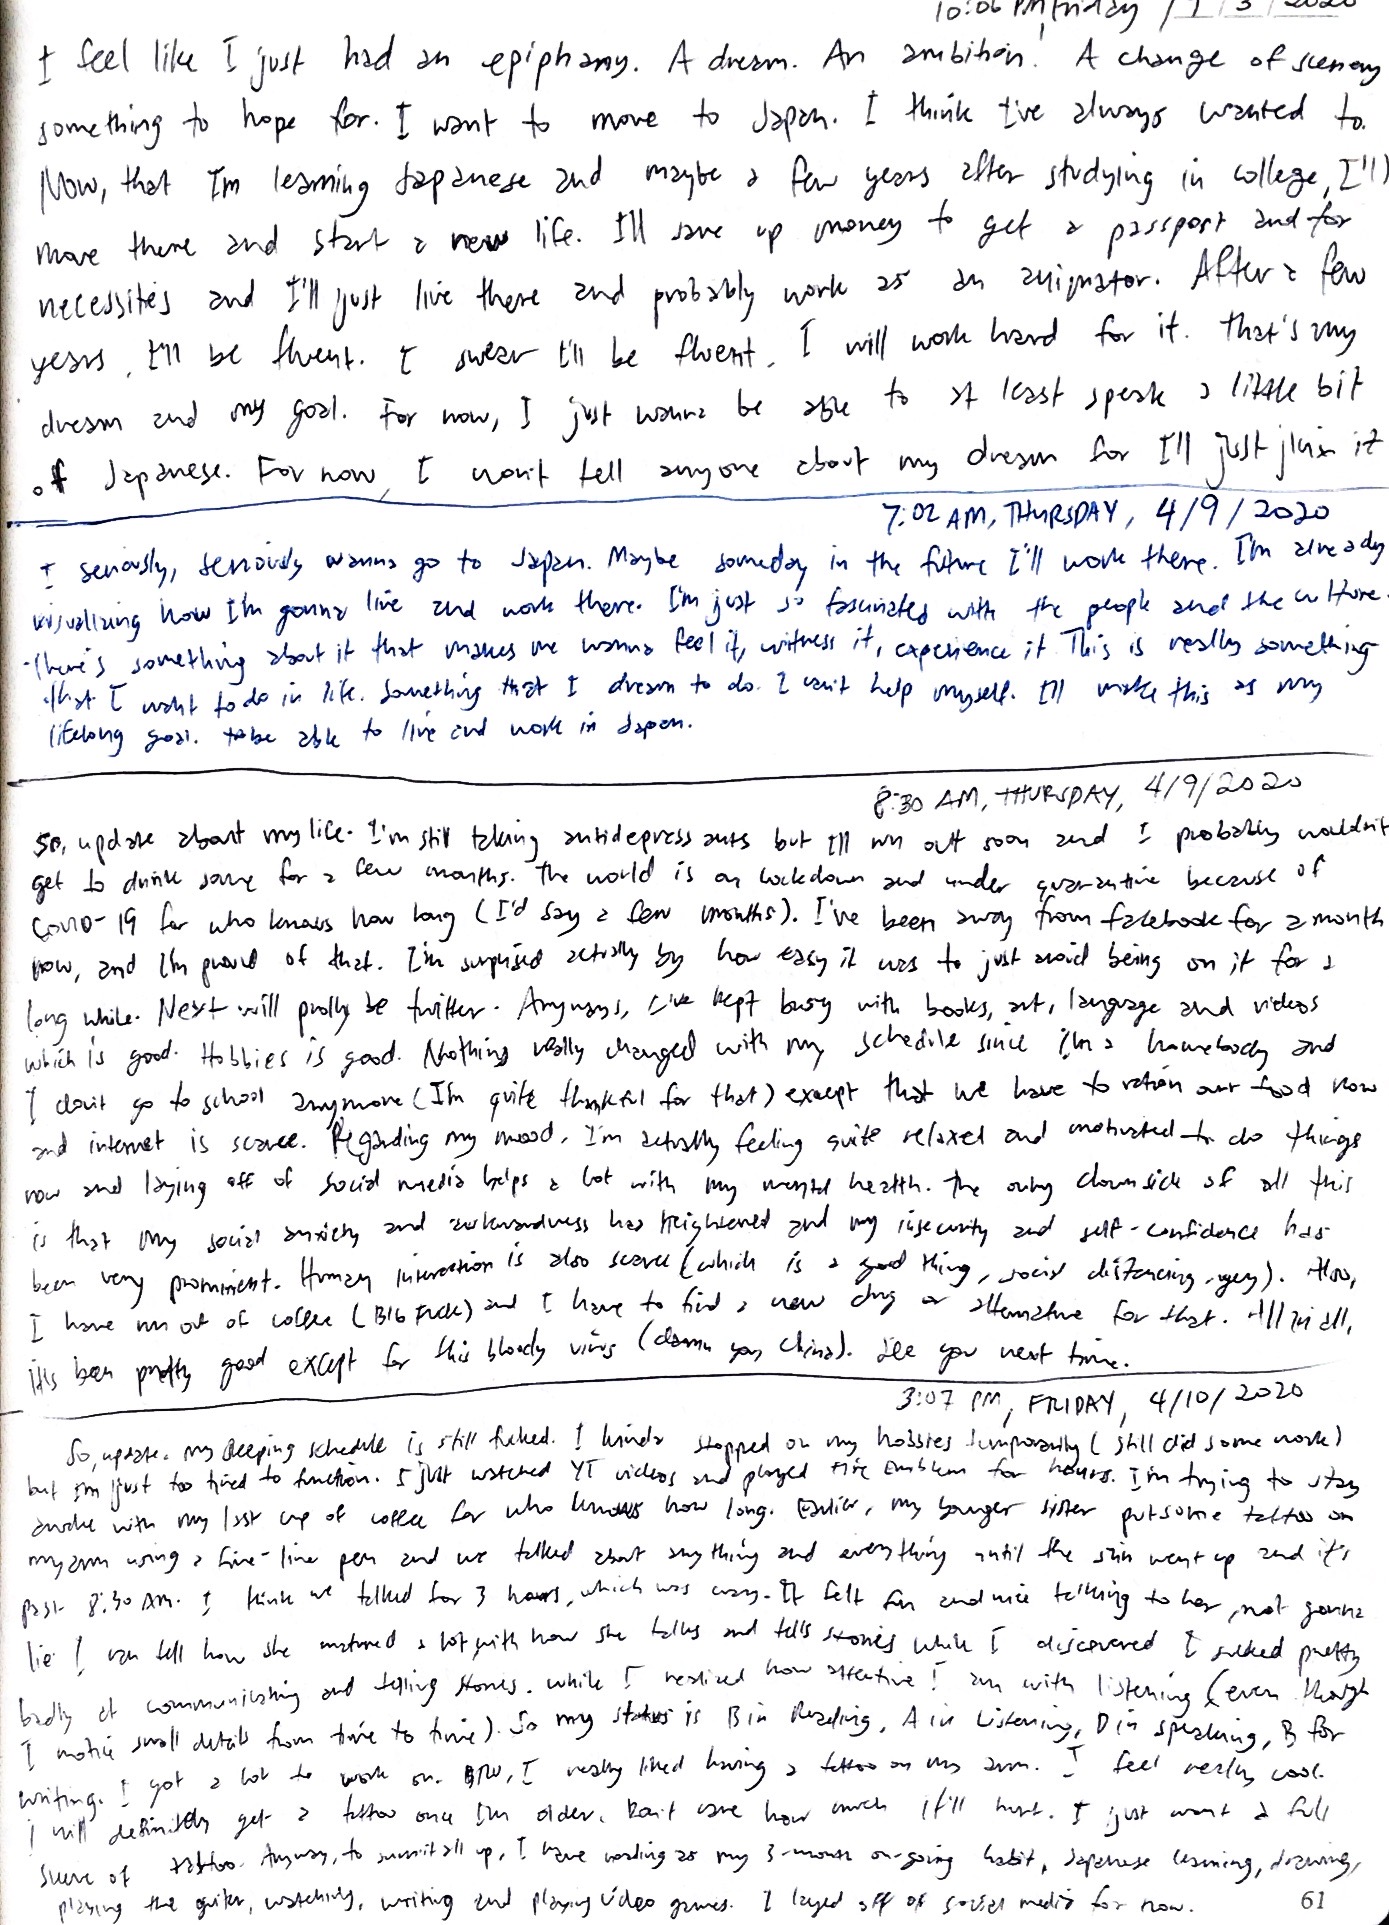 10:06 PM, Friday / 1 / 3 / 2020
I feel like I just had an epiphany. A dream. An ambition! A change of scenery
something to hope for. I want to move to Japan. I think I've always wanted to.
Now, that Im learning Japanese and maybe a few years after studying in college, I'll
move there and start a new life. I'll save up money to get a passport and for
necessites and I'll just live there and probably work as an animator. After a few
years, I'll be fluent. I swear I'll be fluent. I will work hard for it. That's my
dream and my goal. For now, I just wanna be able to at least speak a little bit
of Japanese. For now, I won't tell anyone about my dream for I'll just jinx it
7:02 AM, THURSDAY, 4/9/2020
I seriously, seriously wanna go to Japan. Maybe someday in the future I'll work there. I'm already
visualizing how I'm gonna live and work there. I'm just so fascinated with the people and the culture.
There's something about it that makes me wanna feel it, witness it, experience it. This is really something
that I want to do in life. Something that I dream to do. I can't help myself. I'll make this as my
lifelong goal. to be able to live and work in Japan.
8:30 AM, THURSDAY, 4/9/2020
So, update about my life. I'm still taking antidepressants but I'll run out soon and I probably wouldn't
get to drink some for a few months. The world is on lockdown and under quarantine because of
COVID-19 for who knows how long (I'd say a few months). I've been away from facebook for a month
now, and I'm proud of that. I'm surprised actually by how easy it was to just avoid being on it for a
long while. Next will prolly be twitter. Anyways, I've kept busy with books, art, language and videos
which is good. Hobbies is good. Nothing really changed with my schedule since I'm a homebody and
I don't go to school anymore (I'm quite thankful for that) except that we have to ration our food now
and internet is scarce. Regarding my mood, I'm actually feeling quite relaxed and motivated to do things
now and laying off of social media helps a lot with my mental health. The only downside of all this
is that my social anxiety and awkwardness has heightened and my insecurity and self-confidence has
been very prominent. Human interaction is also scarce (which is a good thing, social distancing, yey). Also,
I have run out of coffee (BIG FUCK) and I have to find a new drug or alternative for that. All in all,
it's been pretty good except for this bloody virus (damn you China). See you next time.
3:07 PM, FRIDAY, 4/10/2020
So, update. my sleeping schedule is still fucked. I kinda stopped on my hobbies temporarily (still did some work)
but I'm just too tired to function. I just watched YT videos and played Fire Emblem for hours. I'm trying to stay
awake with my last cup of coffee for who knows how long. Earlier, my younger sister put some tattoo on
my arm using a fine-line pen and we talked about anything and everything until the sun went up and it's
past 8:30 AM. I think we talked for 3 hours, which was crazy. It felt fun and nice talking to her, not gonna
lie. I can tell how she matured a lot with how she talks and tells stories while I discovered I sucked pretty
badly at communicating and telling stories. While I realized how attentive I am with listening (even though
I notice small details from time to time). So my status is B in Reading, A in Listening, D in speaking, B for
writing. I got a lot to work on. BTW, I really liked having a tattoo on my arm. I feel really cool.
I will definitely get a tattoo once I'm older. Don't care how much it'll hurt. I just want a full
sleeve of tattoo. Anyway, to sum it all up, I have reading as my 3-month on-going habit, Japanese learning, drawing,
playing the guitar, watching, writing and playing video games. I layed off of social media for now.
61